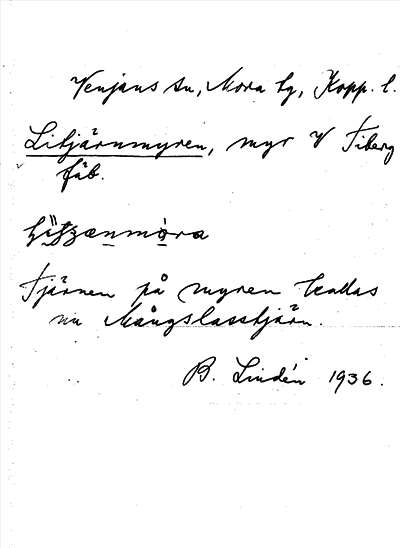 Venjans sn, Mora tg, Kopp. l.
Litjärnmyren, myr V Tiberg
fäb.
Tjärnen på myren kallas
nu Mångslasstjärn.
B. Lindén 1936.